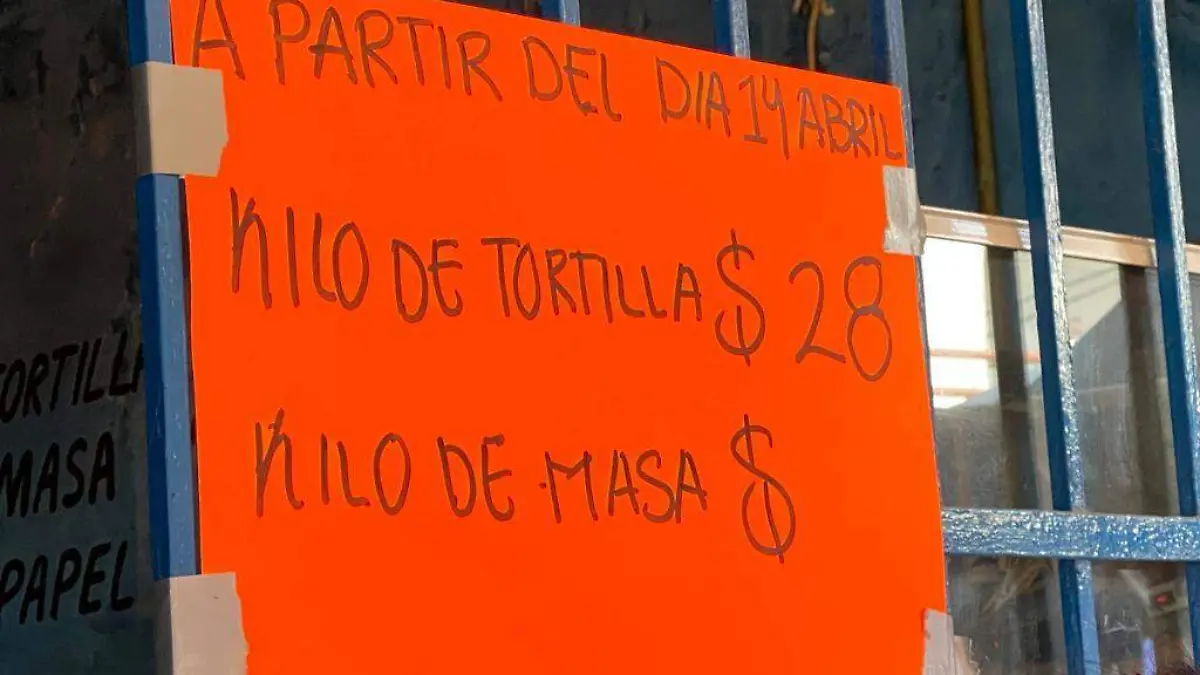 A PARTIR DEL DIA 14 ABRIL
KILO DE TORTILLA $ 28
KILO DE MASA $
TORTILLA
MASA
PAPEL